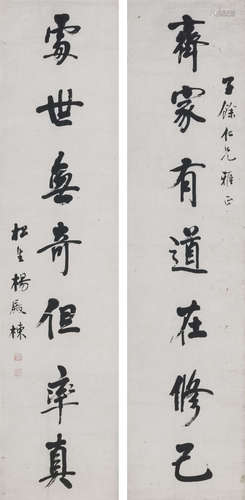 子餘仁兄雅正
齊家有道在修己
處世無奇但率真
松生楊殿棟